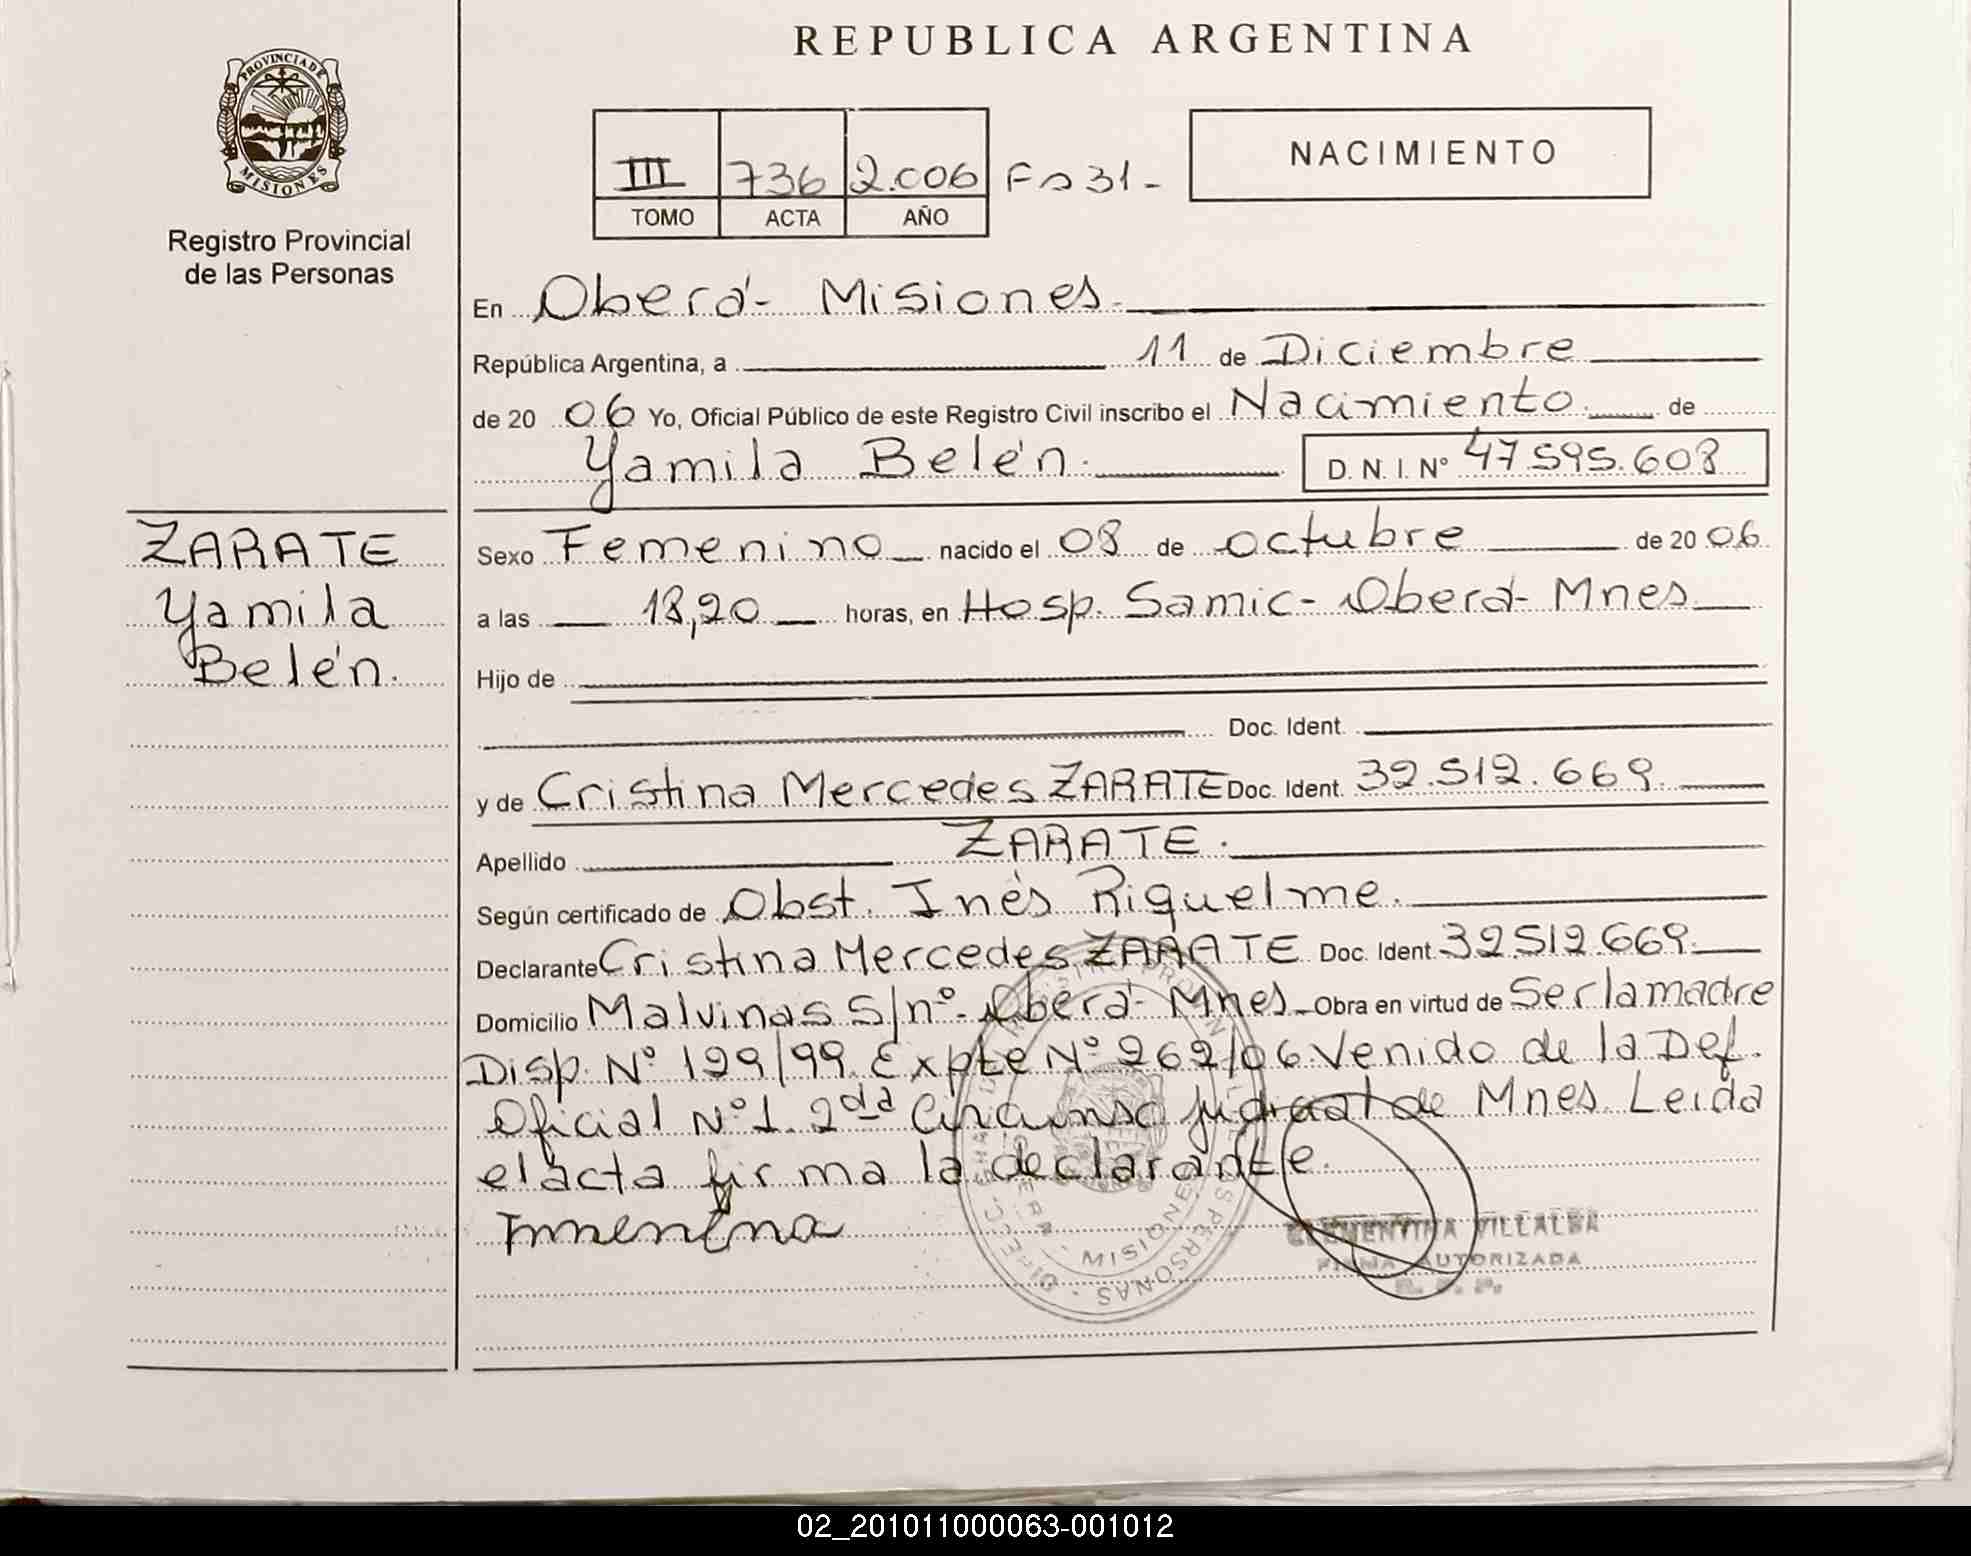 REPUBLICA ARGENTINA
PROVINCIA DE MISIONES
Registro Provincial
de las Personas
III 736 2.006 Fo 31-
TOMO ACTA AÑO
NACIMIENTO
En Oberá- Misiones.
República Argentina, a 11 de Diciembre
de 20 06 Yo, Oficial Público de este Registro Civil inscribo el Nacimiento. de
Yamila Belén. D. N. I. Nº 47.595.608
ZARATE
Yamila
Belén.
Sexo Femenino nacido el 08 de octubre de 20 06
a las 18,20 horas, en Hosp. Samic- Oberá- Mnes
Hijo de
Doc. Ident.
y de Cristina Mercedes ZARATE Doc. Ident. 32.512.669.
Apellido ZARATE.
Según certificado de Obst. Inés Riquelme.
Declarante Cristina Mercedes ZARATE Doc. Ident. 32.512.669.
Domicilio Malvinas S/nº- Oberá- Mnes Obra en virtud de Ser la madre
Disp. Nº 129/99. Expte Nº 262/06 Venido de la Def.
Oficial Nº 1. 2da Circunsc judicial de Mnes. Leida
el acta firma la declarante.
CLEMENTINA VILLALBA
FIRMA AUTORIZADA
R. P. P.
MISIONES
02_201011000063-001012